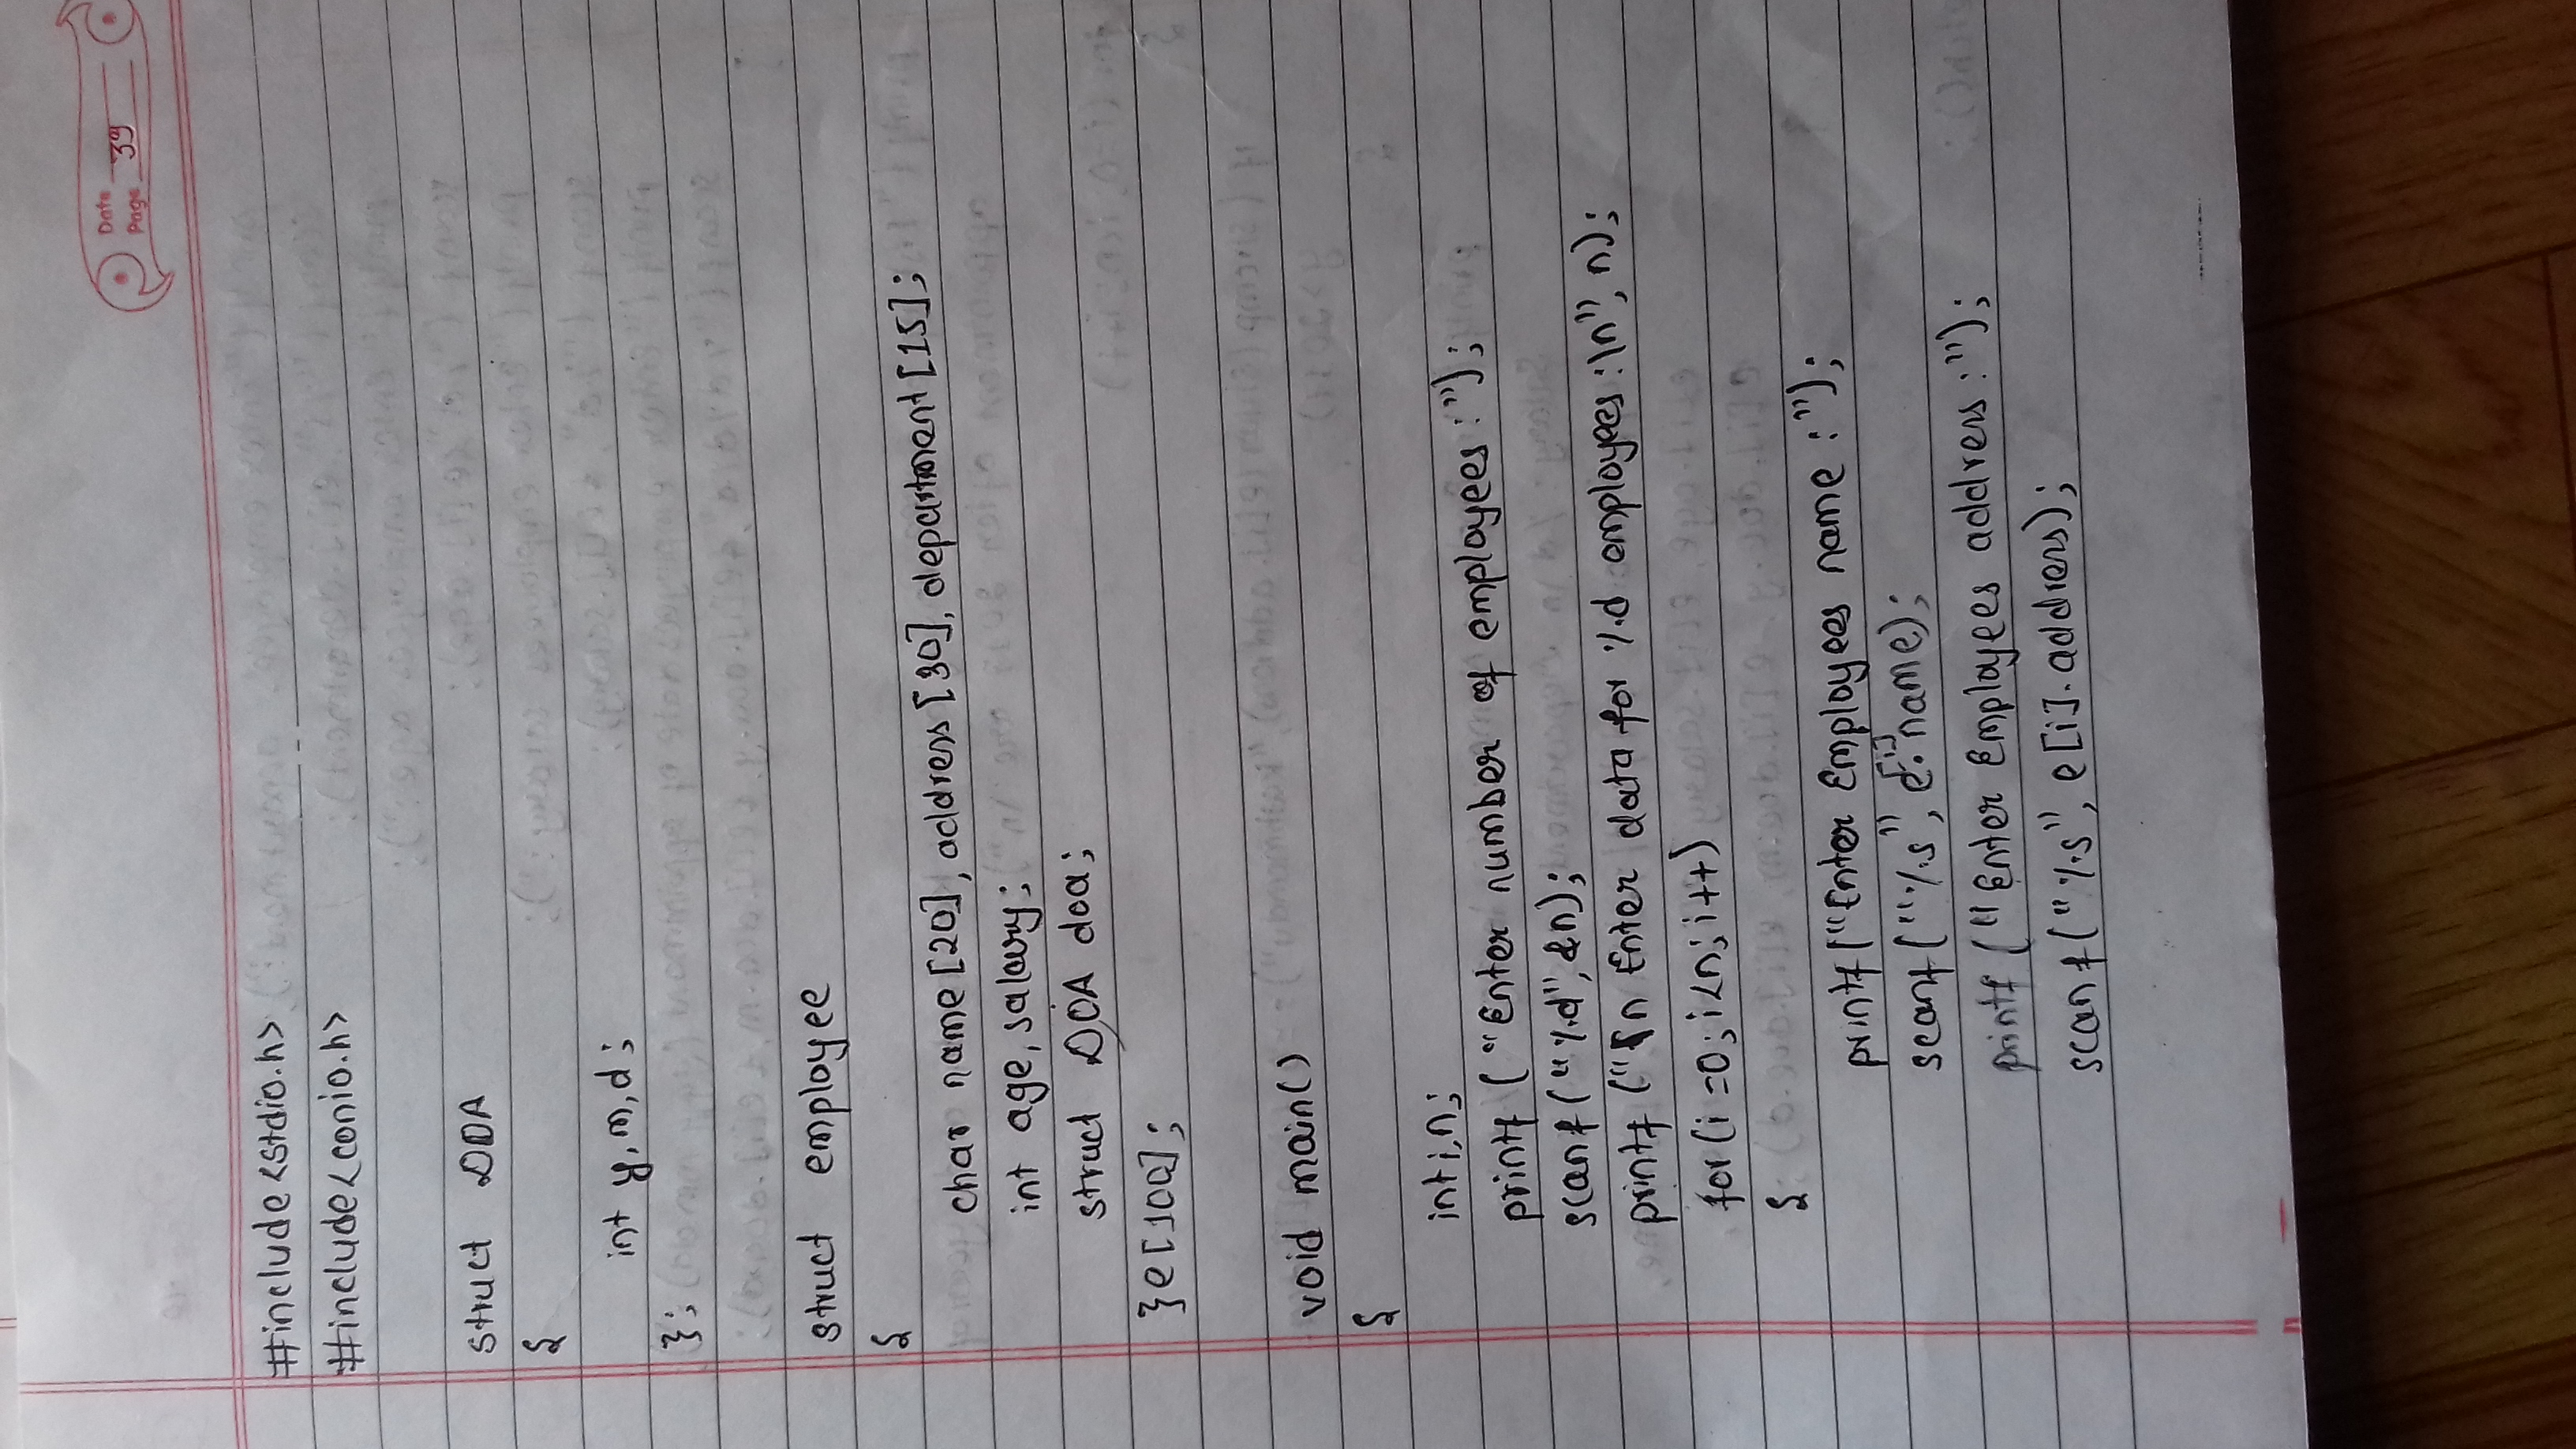 Date
Page 39
#include<stdio.h>
#include<conio.h>
struct DOA
{
int y,m,d;
};
struct employee
{
char name[20], address[30], department[15];
int age, salary;
struct DOA doa;
}e[100];
void main()
{
int i,n;
printf ("Enter number of employees :");
scanf("%d", &n);
printf ("\n Enter data for %d employees :\n", n);
for(i=0; i<n; i++)
{
printf("Enter Employees name :");
scanf("%s", e[i].name);
printf ("Enter Employees address :");
scanf("%s", e[i].address);